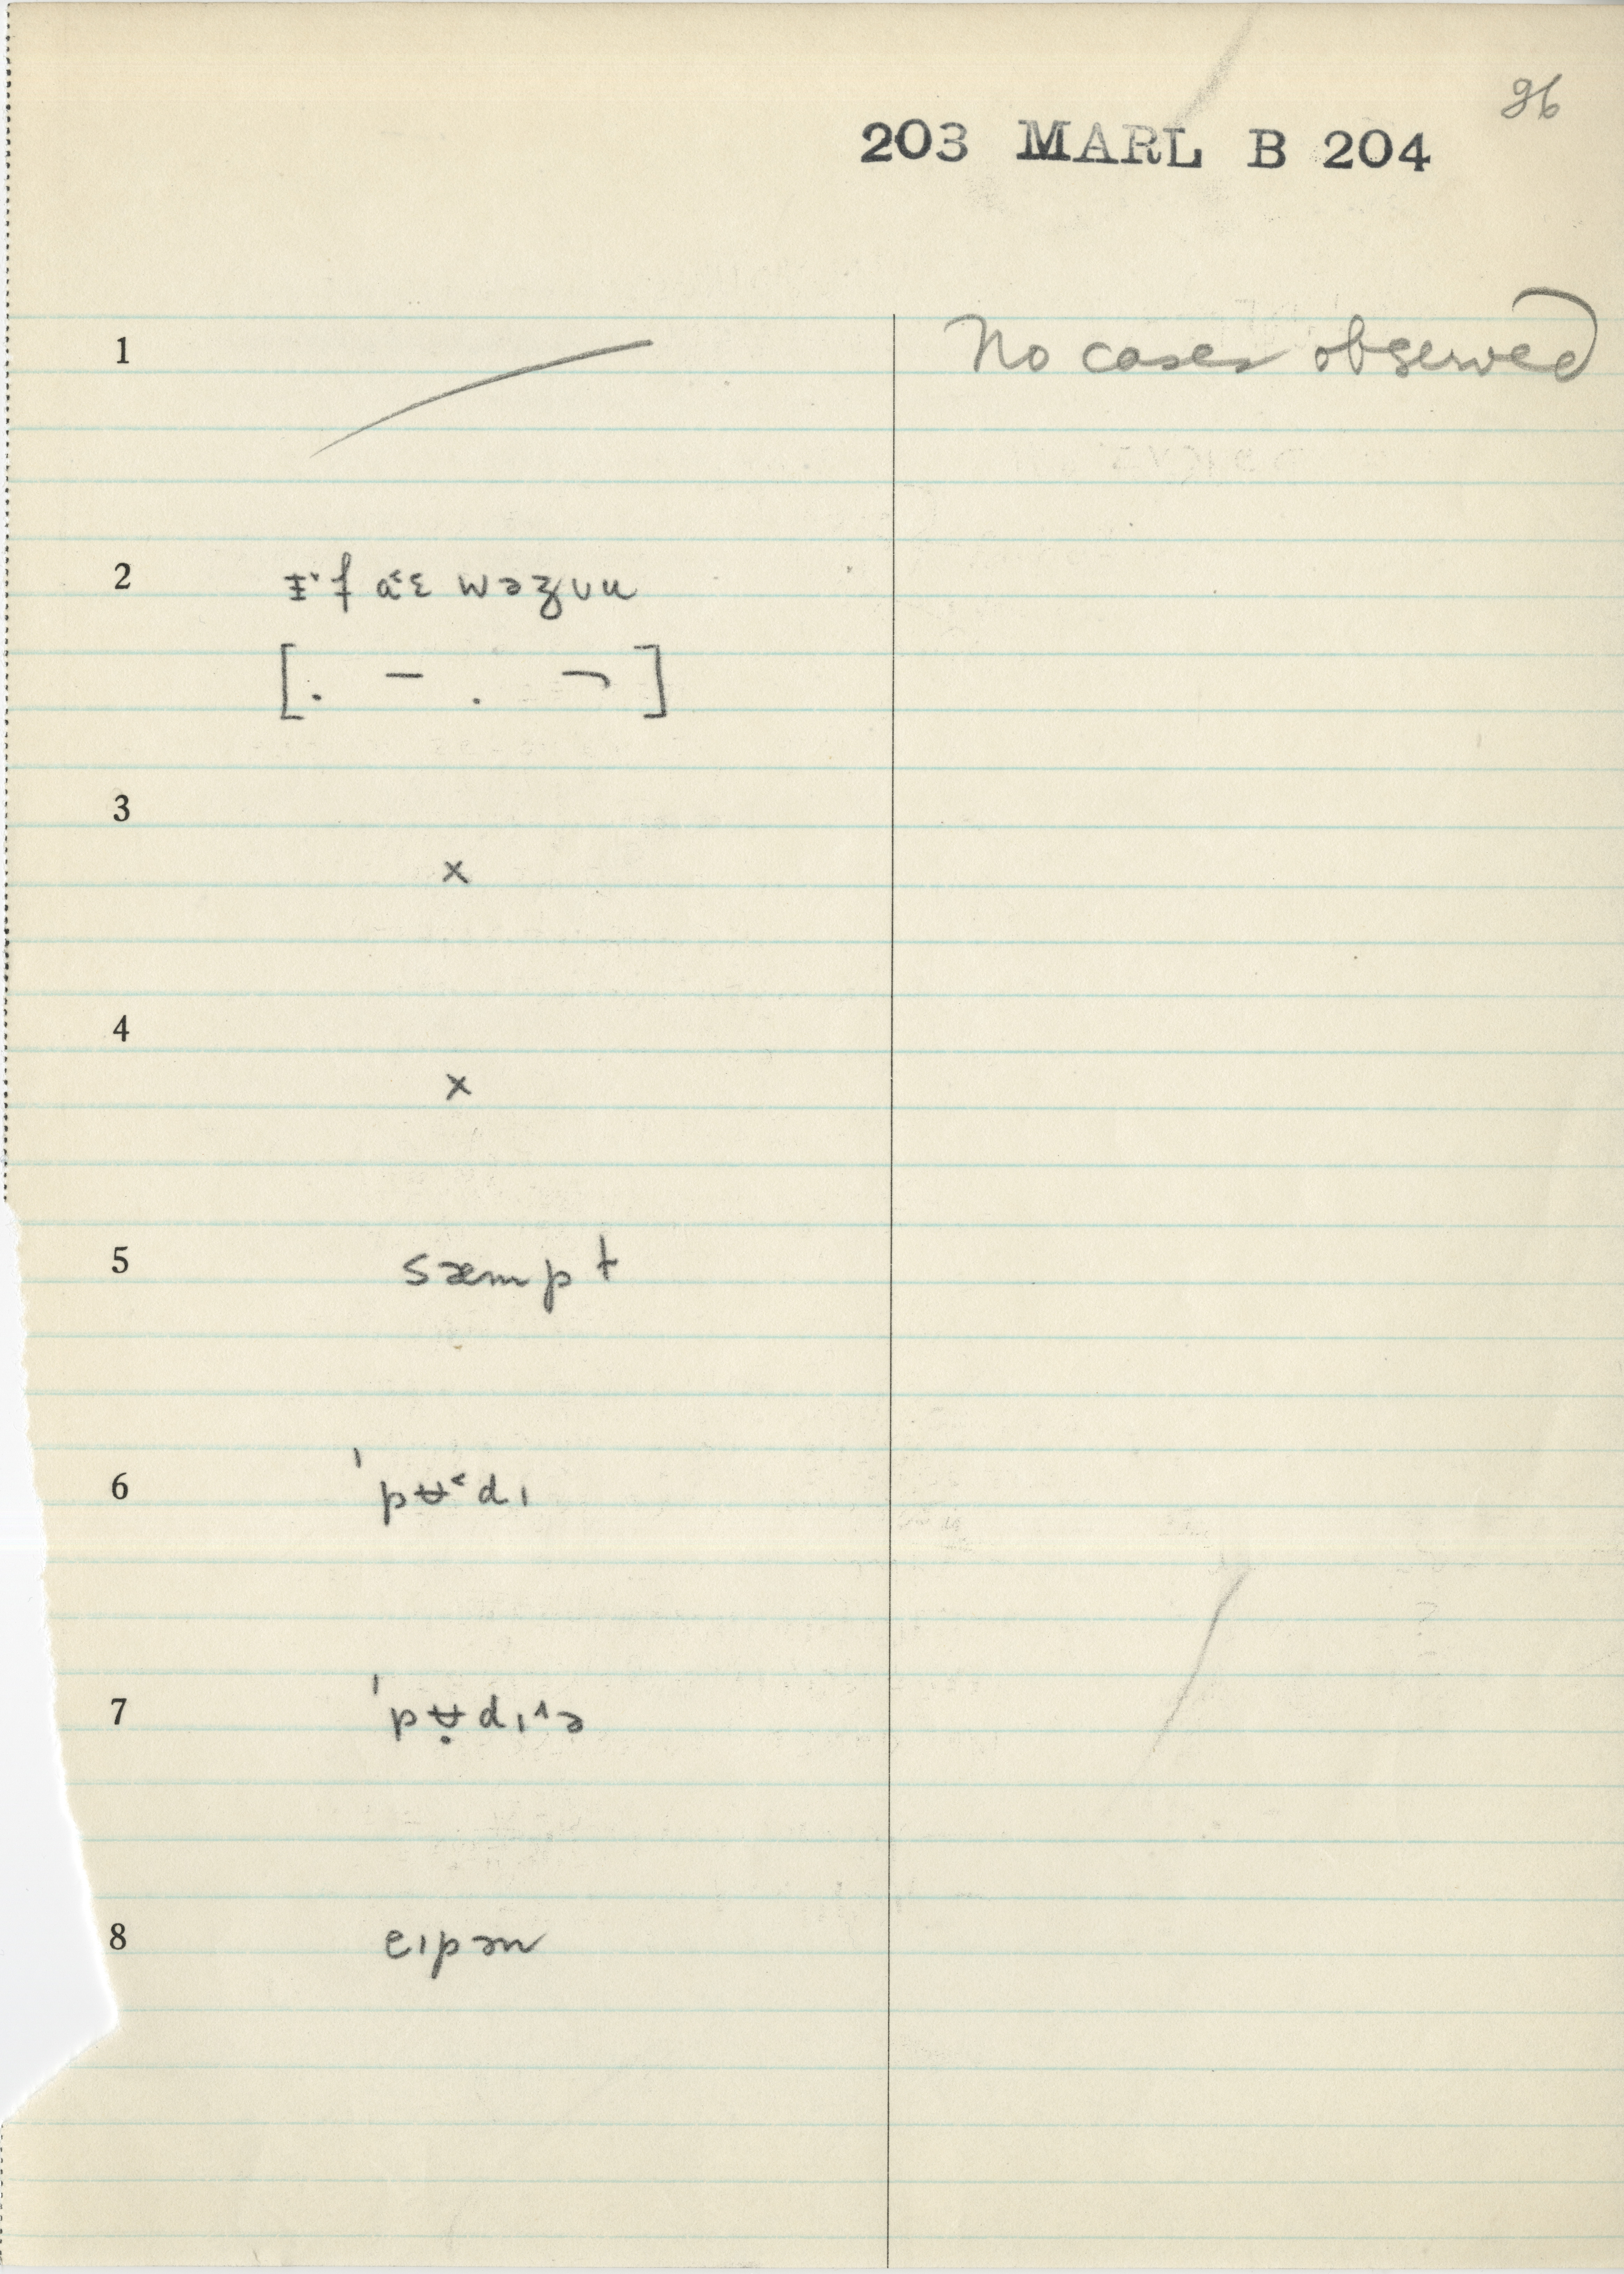 96
203 MARL B 204
1 No cases observed
2 ɪ̵˞f aˑ˂ɛ wəz ʋu
[. – . ¬]
3 ×
4 ×
5 sæmpt
6 ˈpʉ˂dɪ
7 ˈpʉ̣dɪ^ə
8 eɪpəm